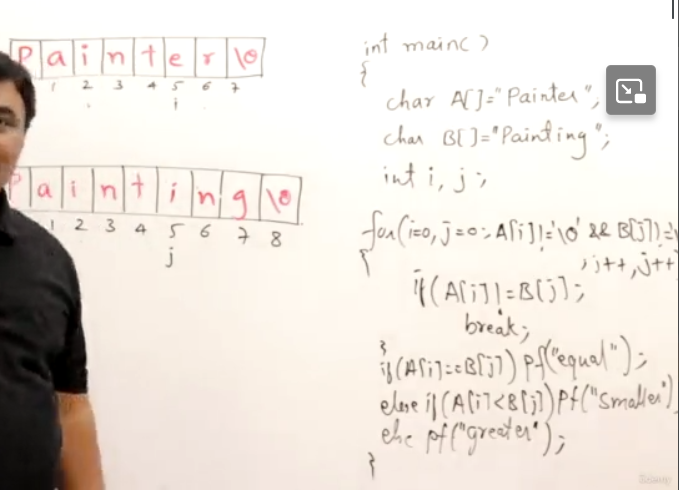 P a i n t e r \0
1 2 3 4 5 6 7
i
a i n t i n g \0
1 2 3 4 5 6 7 8
j
int main()
{
char A[]="Painter";
char B[]="Painting";
int i, j;
for(i=0, j=0; A[i]!='\0' && B[j]!='\
; i++, j++
{
if(A[i]!=B[j];
break;
}
if(A[i]==B[j]) Pf("equal");
else if(A[i]<B[j]) Pf("Smaller")
else pf("greater");
}
Udemy